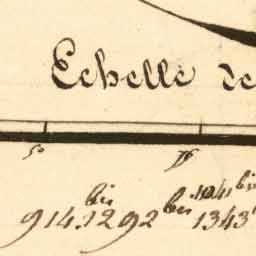 Echelle de
50 75
bis bis 1041 bis
914.1292 1343